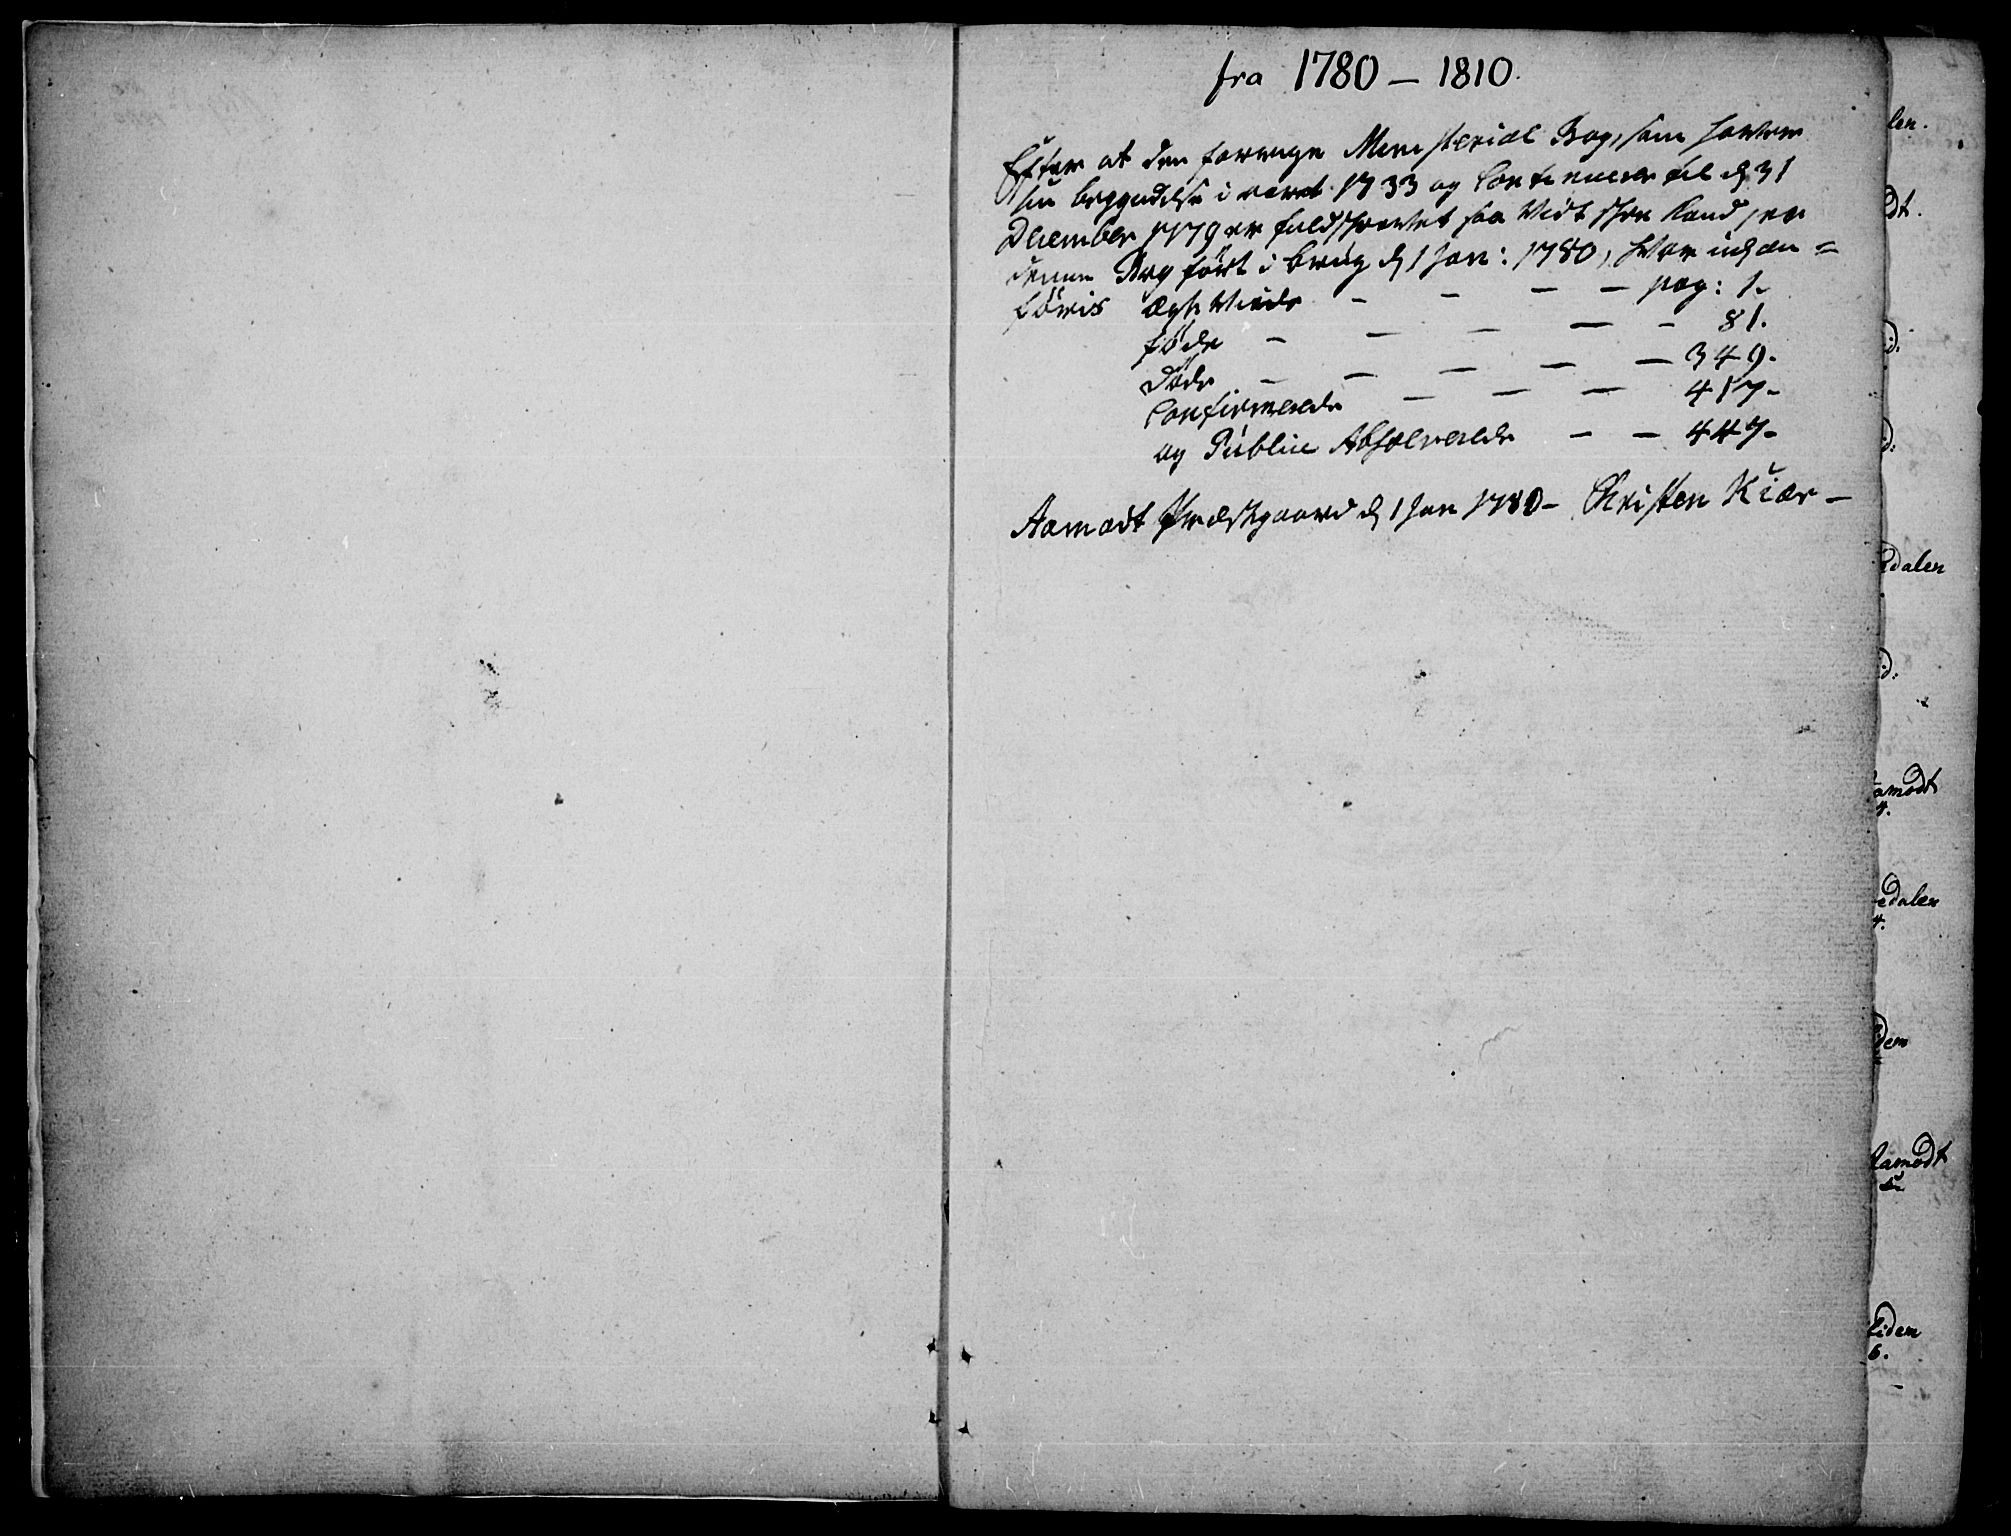 fra 1780 – 1810.
Efter at den forrige Menisterial Bog, som haver
sin begyndelse i aaret 1733 og Continuerer til d 31
December 1779 er fuldskrevet saa Vidt skee kand, er
denne Bog ført i brug d 1 Jan: 1780, hvor udj an=
føris Ægte Viede – – – – pag: 1.
føde – – – – – 81.
døde – – – – – 349.
Confirmerede – – – 417.
og Publice Absolverede – – 447.
Aamodt Præstgaard d 1 Jan 1780 – Christen Kiær –
len.
dt.
id:
id:
edalen
id:
Aamodt
4.
edalen
4.
idem
Aamodt
5
Eidem
6.